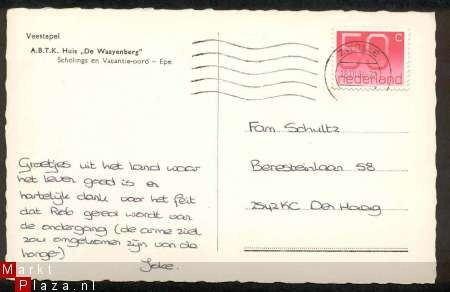 Veestapel
A.B.T.K. Huis „De Waayenberg"
Scholings en Vacantie-oord – Epe
50 c
nederland
Fam. Schultz
Beresteinlaan 58
2542 KC Den Haag
Groetjes uit het land waar
het leven goed is en
hartelijk dank voor het feit
dat Rob gered wordt van
de ondergang (de arme ziel
zou omgekomen zijn van de
honger)
Joke.
Markt
Plaza.nl